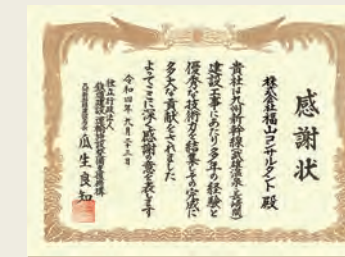 感謝状
株式会社福山コンサルタント 殿
貴社は九州新幹線(武雄温泉・長崎間)
建設工事にあたり多年の経験と
優秀な技術力を結集しその完成に
多大な貢献をされました
よってここに深く感謝の意を表します
令和四年九月二十三日
独立行政法人
鉄道建設・運輸施設整備支援機構